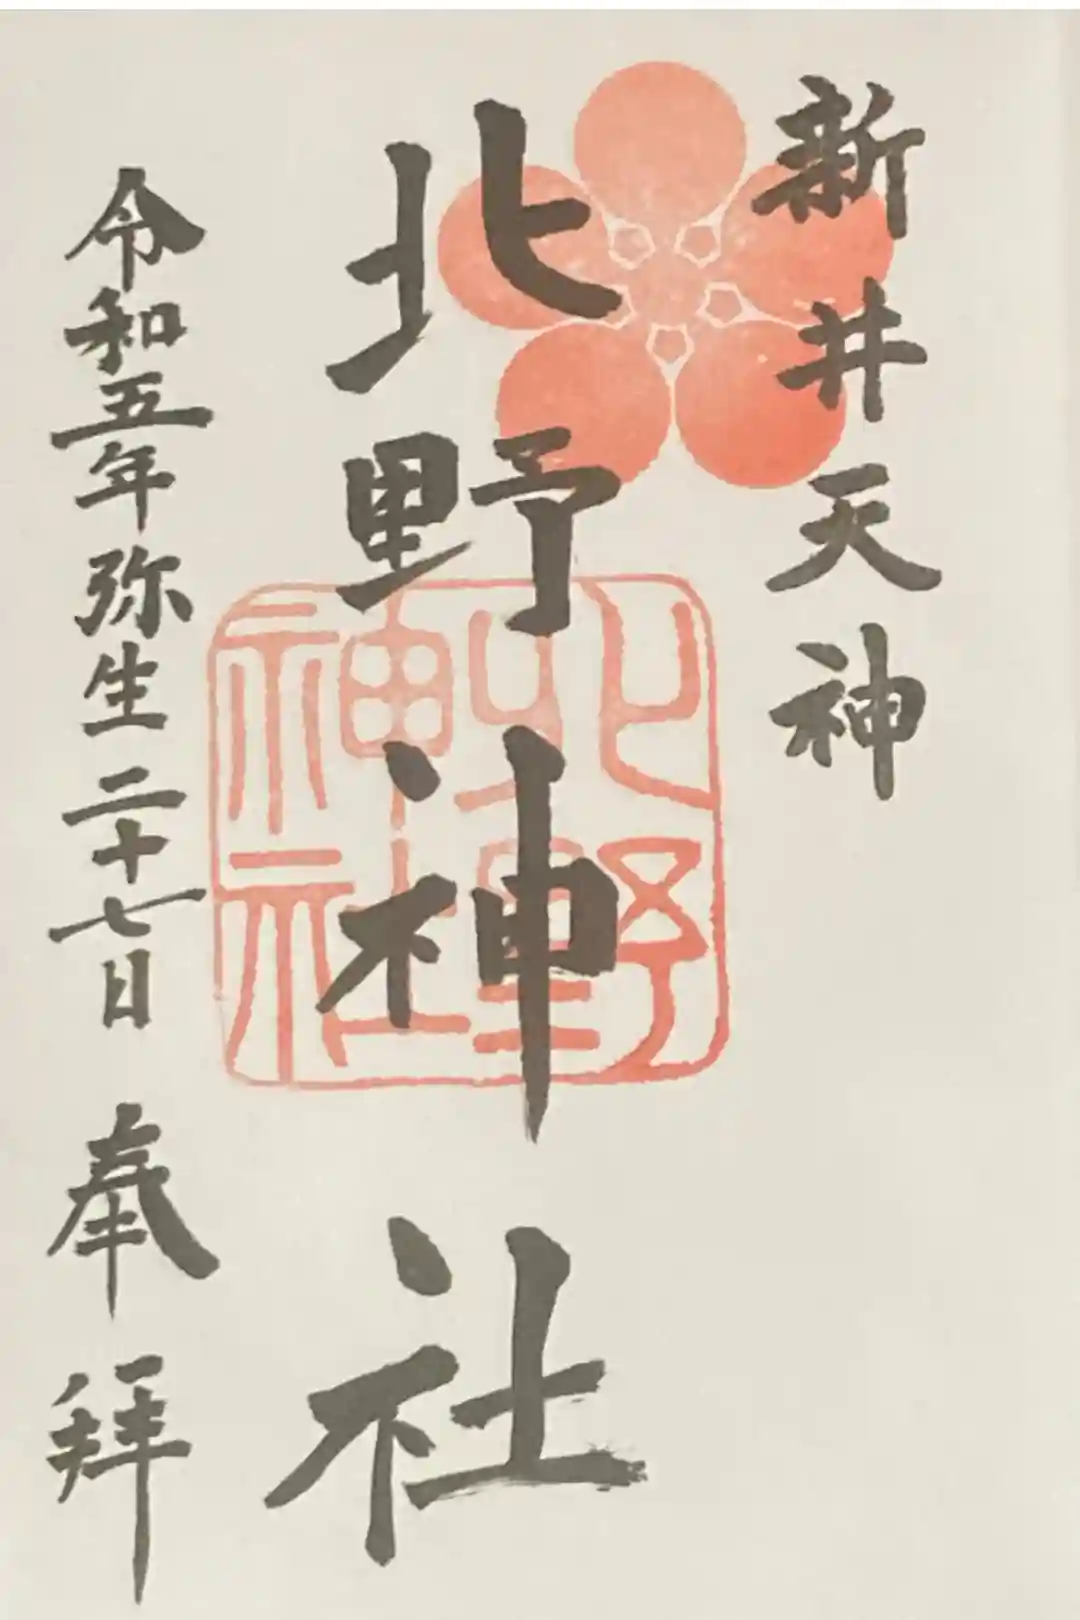 新井天神
北野神社
北野
神社
令和五年弥生二十七日 奉拝